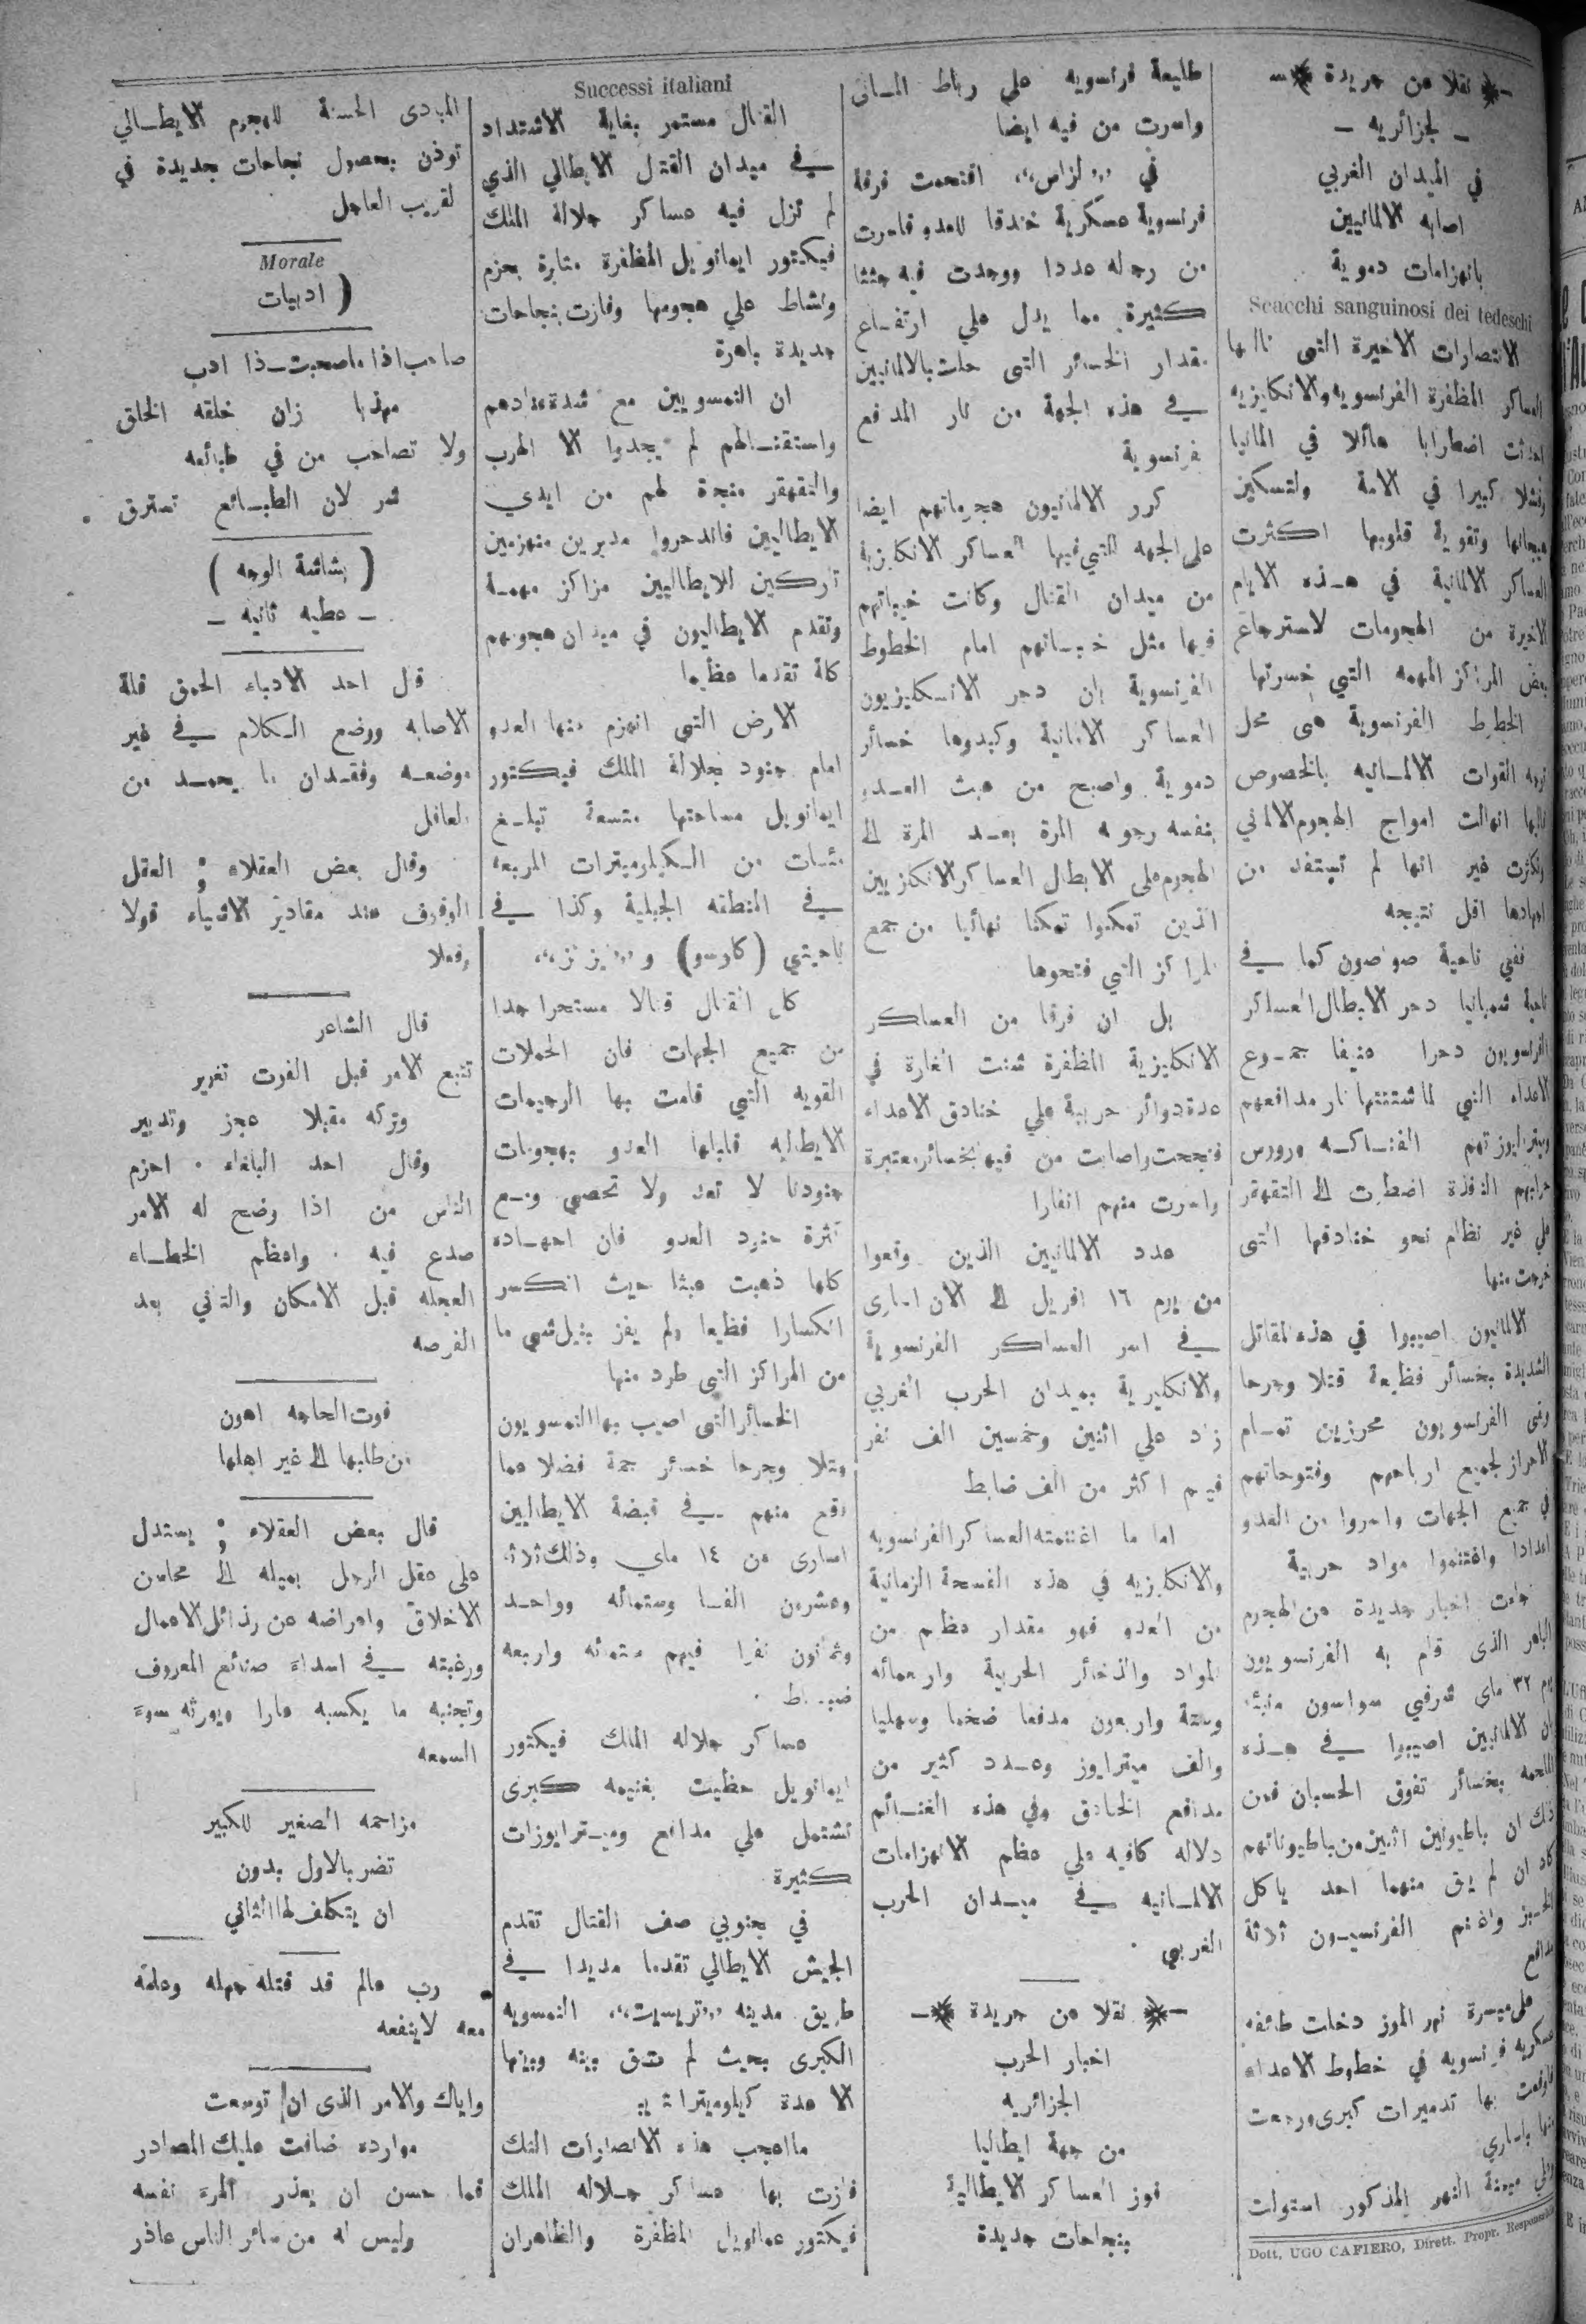 نقلا عن جريدة
ـ لجزائريه ـ
في الميدان الغربي
اصابه الالمانيين
بانهزامات دموية
Scacchi sanguinosi dei tedeschi
الانتصارات الاخيرة التى نالها
العساكر المظفرة الفرنسويه والانكليزيه
احدثت اضطرابا هائلا في المانيا
وفشلا كبيرا في الامة ولتسكين
هيجانها وتقوية قلوبها اكثرت
العساكر الالمانية في هـذه الايام
الاخيرة من الهجومات لاسترجاع
بعض المراكز المهمه التي خسرتها
الخطوط الفرنسوية هى محل
توجه القوات الالمـانيه بالخصوص
انهالت امواج الهجوم الالمني
وتكاثرت غير انها لم تستفد من
اجهادها اقل نتيجه
ففي ناحية صوصون كما في
ناحية شمبانيا دحر الابطال العساكر
الفرنسويون دحرا عنيفا جمـوع
الاعداء التي لما شتتتها نار مدافعهم
وميتراليوزتهم الفتـاكـه ورووس
حرابهم النافذة اضطرت الى التقهقر
على غير نظام نحو خنادقها التى
خرجت منها
الالمانيون اصيبوا في هذه المقاتل
الشديدة بخسائر فظيعة قتلا وجرحا
وبقى الفرنسويون محرزين تمـام
الاحراز لجميع ارباحهم وفتوحاتهم
في جميع الجهات واسروا من العدو
اعدادا واغتنموا مواد حربية
جاءت اخبار جديدة عن الهجوم
الباهر الذى قام به الفرنسويون
يوم ٢٣ ماي شرقي سواسون منبئة
ان الالمانيين اصيبوا في هـذه
الملحمه بخسائر تفوق الحسبان فمن
ذلك ان باطيونين اثنين من باطيوناتهم
كاد ان لم يبق منهما احد ياكل
الخـبز واغتنم الفرنسيـون ثلاثة
مدافع
على ميسرة نهر الموز دخلت طائفه
عسكريه فرنسويه في خطوط الاعداء
فاوقعت بها تدميرات كبرى ورجعت
منها باسارى
وعلى ميمنة النهر المذكور استولت
Dott. UGO CAFIERO, Dirett. Propr. Responsabile
طليعة فرنسويه على رباط المـانى
واسرت من فيه ايضا
في ,,لزاس،، اقتحمت فرقة
فرنسوية عسكرية خندقا للعدو فاسرت
من رجاله عددا ووجدت فيه جثثا
كثيرة مما يدل على ارتفـاع
مقدار الخسائر التى حلت بالالمانيين
في هذه الجهة من نار المدفع
فرنسوية
كرر الالمانيون هجوماتهم ايضا
على الجهه التي فيها العساكر الانكليزية
من ميدان القتال وكانت خيباتهم
فيها مثل خيبـاتهم امام الخطوط
الفرنسوية بان دحر الانـكليزيون
العساكر الالمانية وكبدوها خسائر
دموية واصبح من عبث العـدو
بنفسه رجوعه المرة بعـد المرة الى
الهجوم على الابطال العساكر الانكليزيين
الذين تمكنوا تمكنا نهائيا من جمع
المراكز التي فتحوها
بل ان فرقا من العساكر
الانكليزية المظفرة شنت الغارة في
عدة دوائر حربية على خنادق الاعداء
فنجحت واصابت من فيها بخسائر معتبرة
واسرت منهم انفارا
عدد الالمانيين الذين وقعوا
من يوم ١٦ افريل الى الان اسارى
في اسر العساكر الفرنسوية
والانكليزية بميدان الحرب الغربي
زاد على اثنين وخمسين الف نفر
فيهم اكثر من الف ضابط
اما ما اغتنمته العساكر الفرنسويه
والانكليزيه في هذه الفسحة الزمانية
من العدو فهو مقدار عظم من
المواد والذخائر الحربية واربعمائه
وستة واربعون مدفعا ضخما وسهليا
والف ميترايوز وعـدد كثير من
مدافع الخنادق وفي هذه الغنـائم
دلاله كافيه على عظم الانهزامات
الالمـانيه في ميـدان الحرب
الغربي .
نقلا عن جريدة
اخبار الحرب
الجزائريه
من جهة ايطاليا
فوز العساكر الايطالية
بنجاحات جديدة
Successi italiani
القتال مستمر بغاية الاشتداد
في ميدان القتال الايطالي الذي
لم تزل فيه عساكر جلالة الملك
فيكتور ايمانويل المظفرة مثابرة بحزم
ونشاط على هجومها وفازت بنجاحات
جديدة باهرة
ان النمسويين مع شدة عنادهم
واستقتـالهم لم يجدوا الا الهرب
والتقهقر منجاة لهم من ايدي
الايطاليين فاندحروا مدبرين منهزمين
تاركين للايطاليين مراكز مهمـة
وتقدم الايطاليون في ميدان هجومهم
كلة تقدما عظيما
الارض التى انهزم منها العدو
امام جنود جلالة الملك فيكتور
ايمانويل مساحتها متسعة تبلـغ
مئـات من الـكيلوميترات المربعه
في المنطقه الجبلية وكذا في
ناحيتي (كارسو) و
كان القتال قتالا مستحرا جدا
من جميع الجهات فان الحملات
القويه التي قامت بها الرجيمات
الايطاليه قابلها العدو بهجومات
جنودنا لا تعد ولا تحصى ومـع
كثرة جنود العدو فان اجهـاده
كلها ذهبت عبثا حيث انكسر
انكسارا فظيعا ولم يفز بنيل شى ما
من المراكز التي طرد منها
الخسائر التى اصيب بها النمسويون
قتلا وجرحا خسائر جمة فضلا عما
وقع منهم في قبضة الايطاليين
اسارى من ١٤ ماي وذلك ثلاثة
وعشرون الفـا وستمائه وواحـد
وثمانون نفرا فيهم ستمائه واربعه
ضبـاط .
عساكر جلاله الملك فيكتور
ايمانويل حظيت بغنيمه كبرى
تشتمل على مدافع وميـترايوزات
كثيرة
في جنوبي صف القتال تقدم
الجيش الايطالي تقدما مديدا في
طريق مدينه ,,تريسيت،، النمسويه
الكبرى بحيث لم تبق بينه وبينها
الا عدة كيلوميترات
ما اعجب هذه الانتصارات التلك
فازت بها عساكر جـلاله الملك
فيكتور عمانويل المظفرة والظاهران
المبادى الحسنة للهجوم الايطـالي
توذن بحصول نجاحات جديدة في
لقريب العاجل
Morale
( ادبيات
صاحب اذا ما صحبت ذا ادب
مهذبا زان خلقه الخلق
ولا تصاحب من في طبائعه
شر لان الطبـائع تسترق .
( بشاشة الوجه )
ـ عطيه ثانيه ـ
قال احد الادباء الحمق قلة
الاصابه ووضع الـكلام في غير
موضعـه وفقـدان ما يحمـد من
العاقل
وقال بعض العقلاء ; العقل
الوقوف عند مقادير الاشياء قولا
وفعلا
قال الشاعر
تتبع الامر قبل الفوت تغرير
وتركه مقبلا عجز وتدبير
وقال احد البلغاء . احزم
الناس من اذا وضح له الامر
صدع فيه . واعظم الخطـاء
العجله قبل الامكان والتاني بعد
الفرصه
فوت الحاجه اهون
من طلبها الى غير اهلها
قال بعض العقلاء ; يستدل
على عقل الرجل بميله الى محاسن
الاخلاق واعراضه عن رذائل الاعمال
ورغبته في اسداء صنائع المعروف
وتجنبه ما يكسبه عارا ويورثه سوء
السمعه
مزاحمه الصغير للكبير
تضر بالاول بدون
ان يتكلف لها الثاني
رب عالم قد قتله جهله وعلمه
معه لاينفعه
واياك والامر الذى ان توسعت
موارده ضاقت عليك المصادر
فما حسن ان يعذر المرء نفسه
وليس له من سائر الناس عاذر